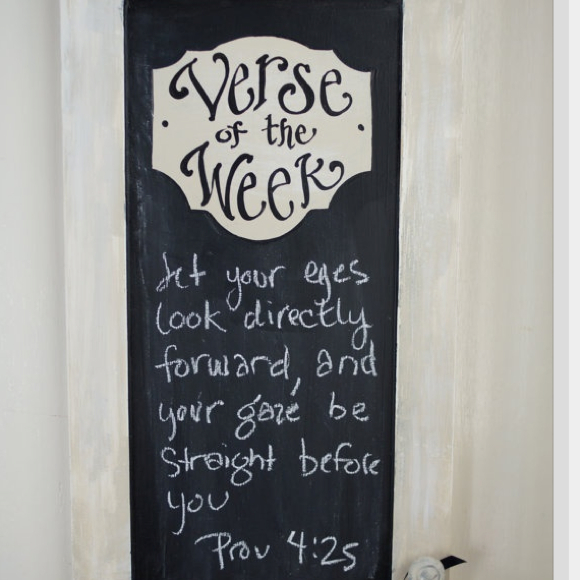 Verse
of the
Week
Let your eyes
look directly
forward, and
your gaze be
straight before
you
Prov 4:25